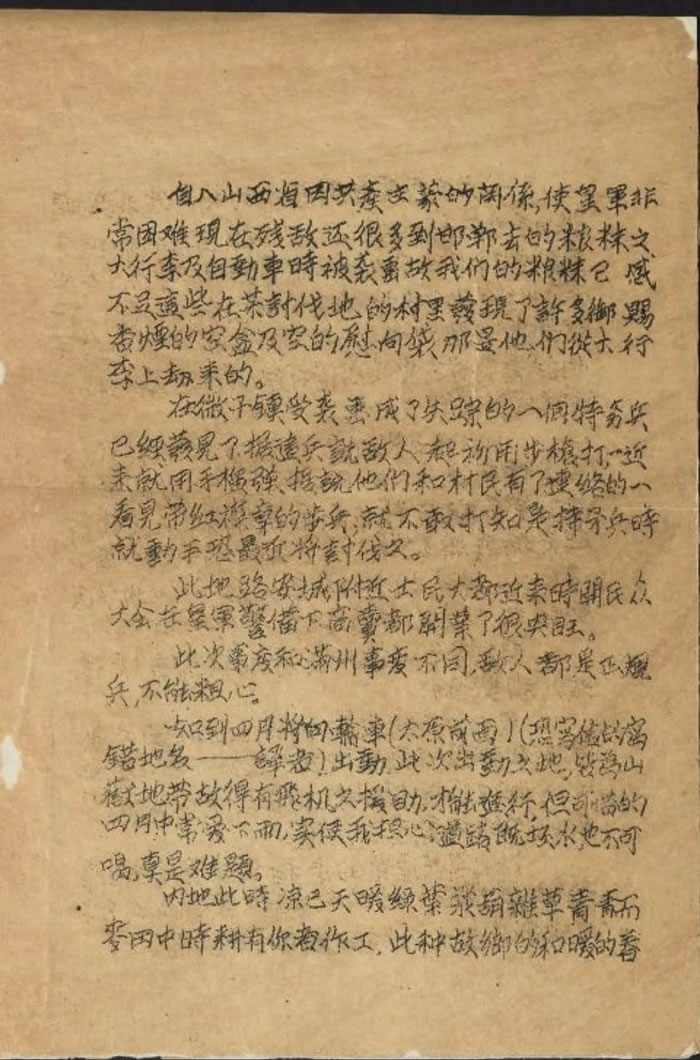 自入山西省因共產主義的関係,使皇軍非
常困难現在残敌还很多到邯鄲去的粮秣之
大行李及自動車時被襲擊故我们的粮秣已感
不足這些在某討伐地的村里發現了許多御賜
香煙的空盒及空的慰问袋那是他们從大行
李上劫来的。
在微子鎮受襲擊成了失踪的一個特务兵
已經發見了據這兵説敌人起初用步槍打,一近
来就用手榴弹,據説他们和村民有了連絡的一
看見帶红襟章的步兵,就不敢打知是特务兵時
就動手恐最近将討伐之。
此地路安城附近士民大都近来時開民众
大会在皇軍警備下商賣都開業了很興旺。
此次事变和滿州事变不同,敌人都是正規
兵,不能粗心。
知到四月将向輪車(太原前面)(恐寫信的寫
錯地名——譯者)出動,此次出動之地,皆為山
嶽地带故得有飛机之援助,才能進行,但可惜的
四月中常愛下雨,实使我担心,道路既坏水也不可
喝,真是难題。
内地此時凉已天暖綠葉雜草青青而
麥田中時耕有作工,此种故鄉的和暖的春